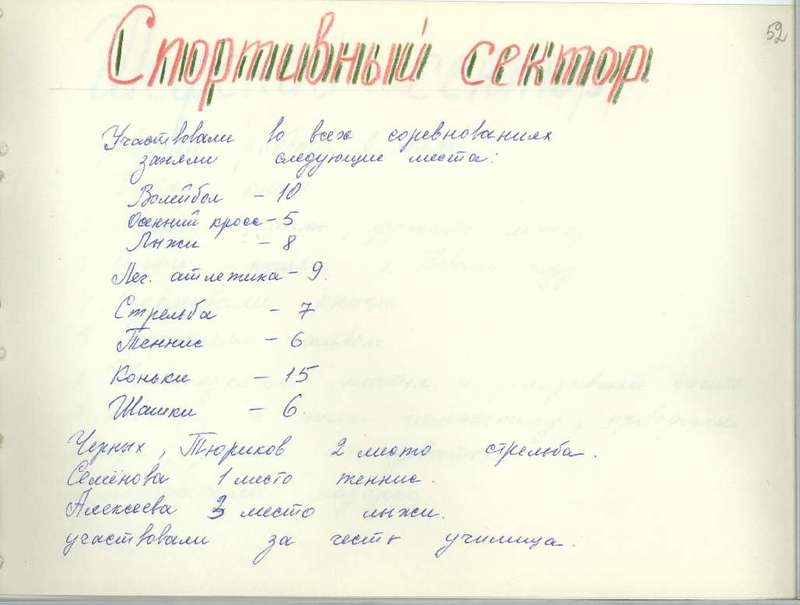 52
Спортивный сектор
Участвовали во всех соревнованиях
заняли следующие места:
Волейбол - 10
Осенний кросс - 5
Лыжи - 8
Лег. атлетика - 9.
Стрельба - 7
Теннис - 6
Коньки - 15
Шашки - 6.
Черных, Тюриков 2 место стрельба.
Семёнова 1 место теннис.
Алексеева 3 место лыжи.
участвовали за честь училища.